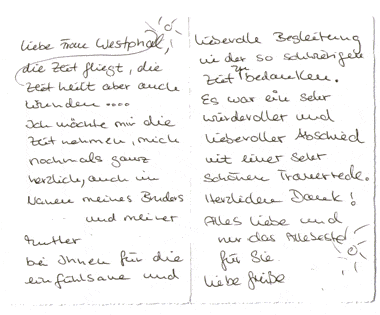 liebe Frau Westphal,
die Zeit fliegt, die
Zeit heilt aber auch
Wunden ....
Ich möchte mir die
Zeit nehmen, mich
nochmals ganz
herzlich, auch im
Namen meines Bruders
und meiner
Mutter
bei Ihnen für die
einfühlsame und
liebevolle Begleitung
in der so schwierigen
Zeit zu bedanken.
Es war ein sehr
würdevoller und
liebevoller Abschied
mit einer sehr
schönen Trauerrede.
Herzlichen Dank!
Alles liebe und
nur das Allerbeste
für Sie
liebe Grüße